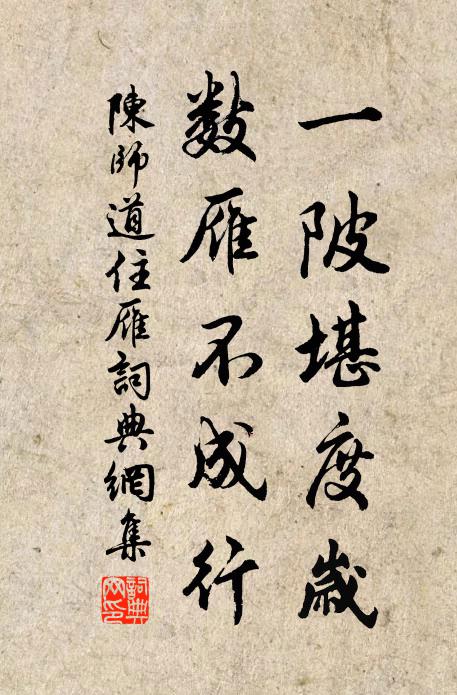 一陂堪度歲
數雁不成行
陳師道住雁詞典網集
詞典
网印